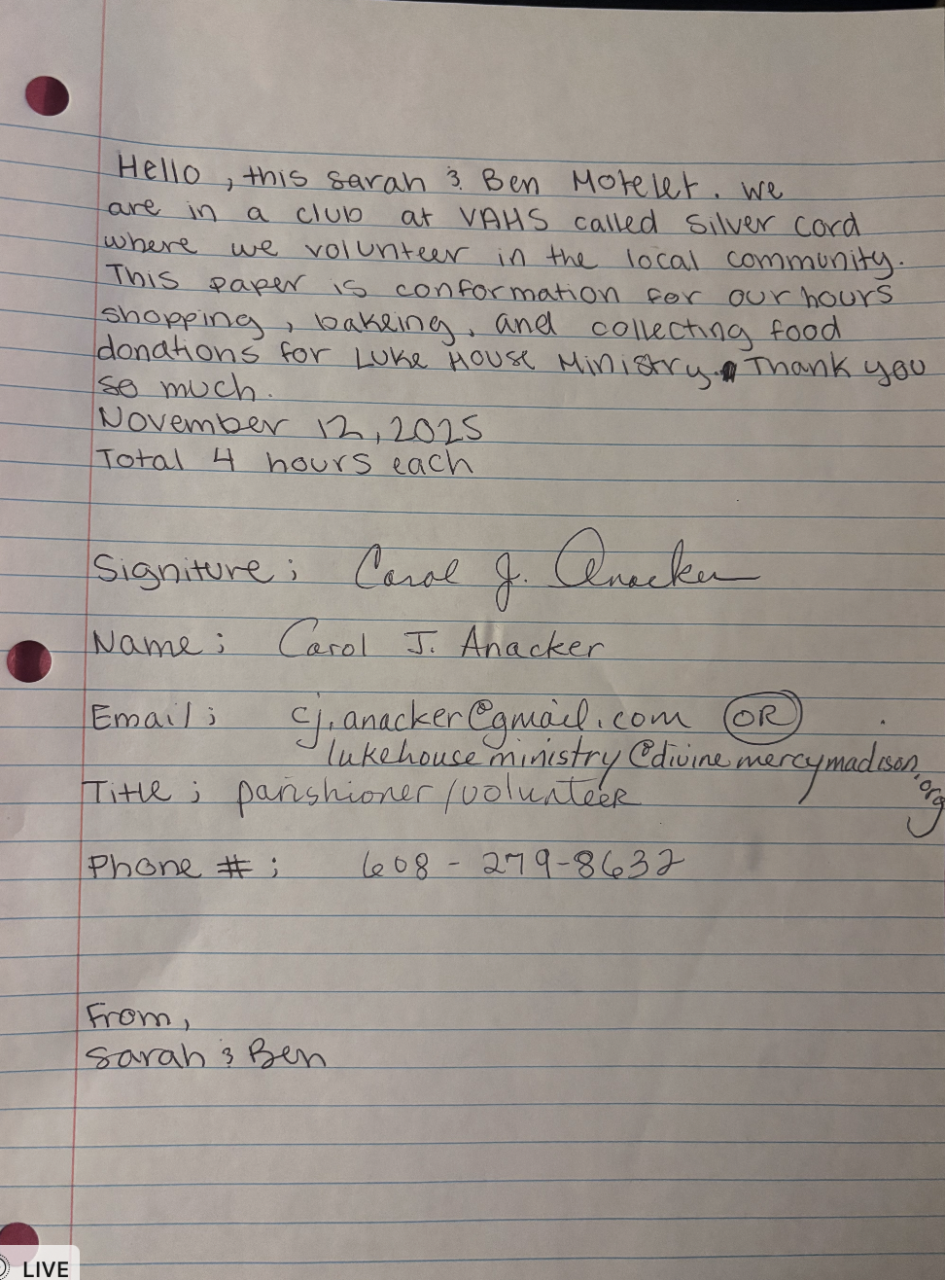 Hello, this sarah & Ben Motelet. We
are in a club at VAHS called Silver Cord
where we volunteer in the local community.
This paper is conformation for our hours
shopping, bakeing, and collecting food
donations for Luke House Ministry. Thank you
so much.
November 12, 2025
Total 4 hours each
Signiture; Carol J. Anacker
Name; Carol J. Anacker
Email; cj.anacker@gmail.com OR
lukehouseministry@divinemercymadison.org
Title; parishioner/volunteer
Phone #; 608-279-8632
From,
Sarah & Ben
LIVE